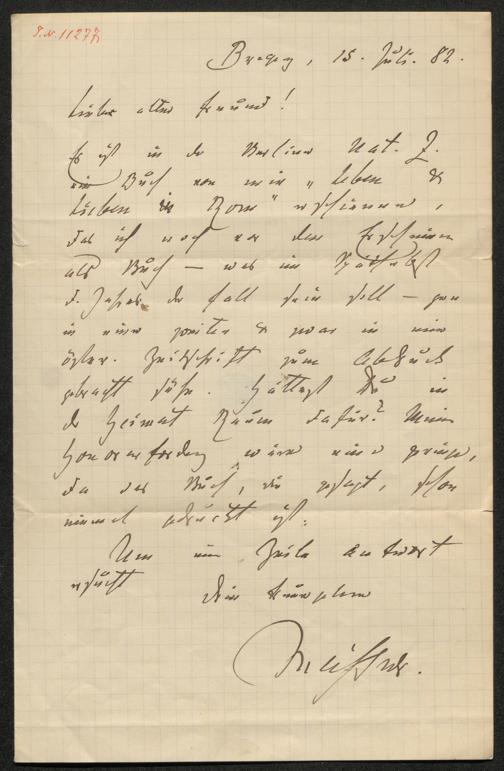 I.N. 11277
Bregenz, 15. Juli. 82.
Lieber alter Freund!
Es ist in der Berliner Nat. Z.
ein Buch von mir „Leben &
Lieben in Rom“ erschienen,
das ich noch vor dem Erscheinen
als Buch – was im Spätherbst
d. Jahres der Fall sein soll – gern
in einer zweiten & zwar in einer
öster. Zeitschrift zum Abdruck
gebracht sähe. Hättest Du in
der Heimat Raum dafür? Meine
Honorarforderung wäre eine geringe,
da das Buch, wie gesagt, schon
einmal gedruckt ist.
Um eine Zeile Antwort
ersucht
Dein
Meißner.